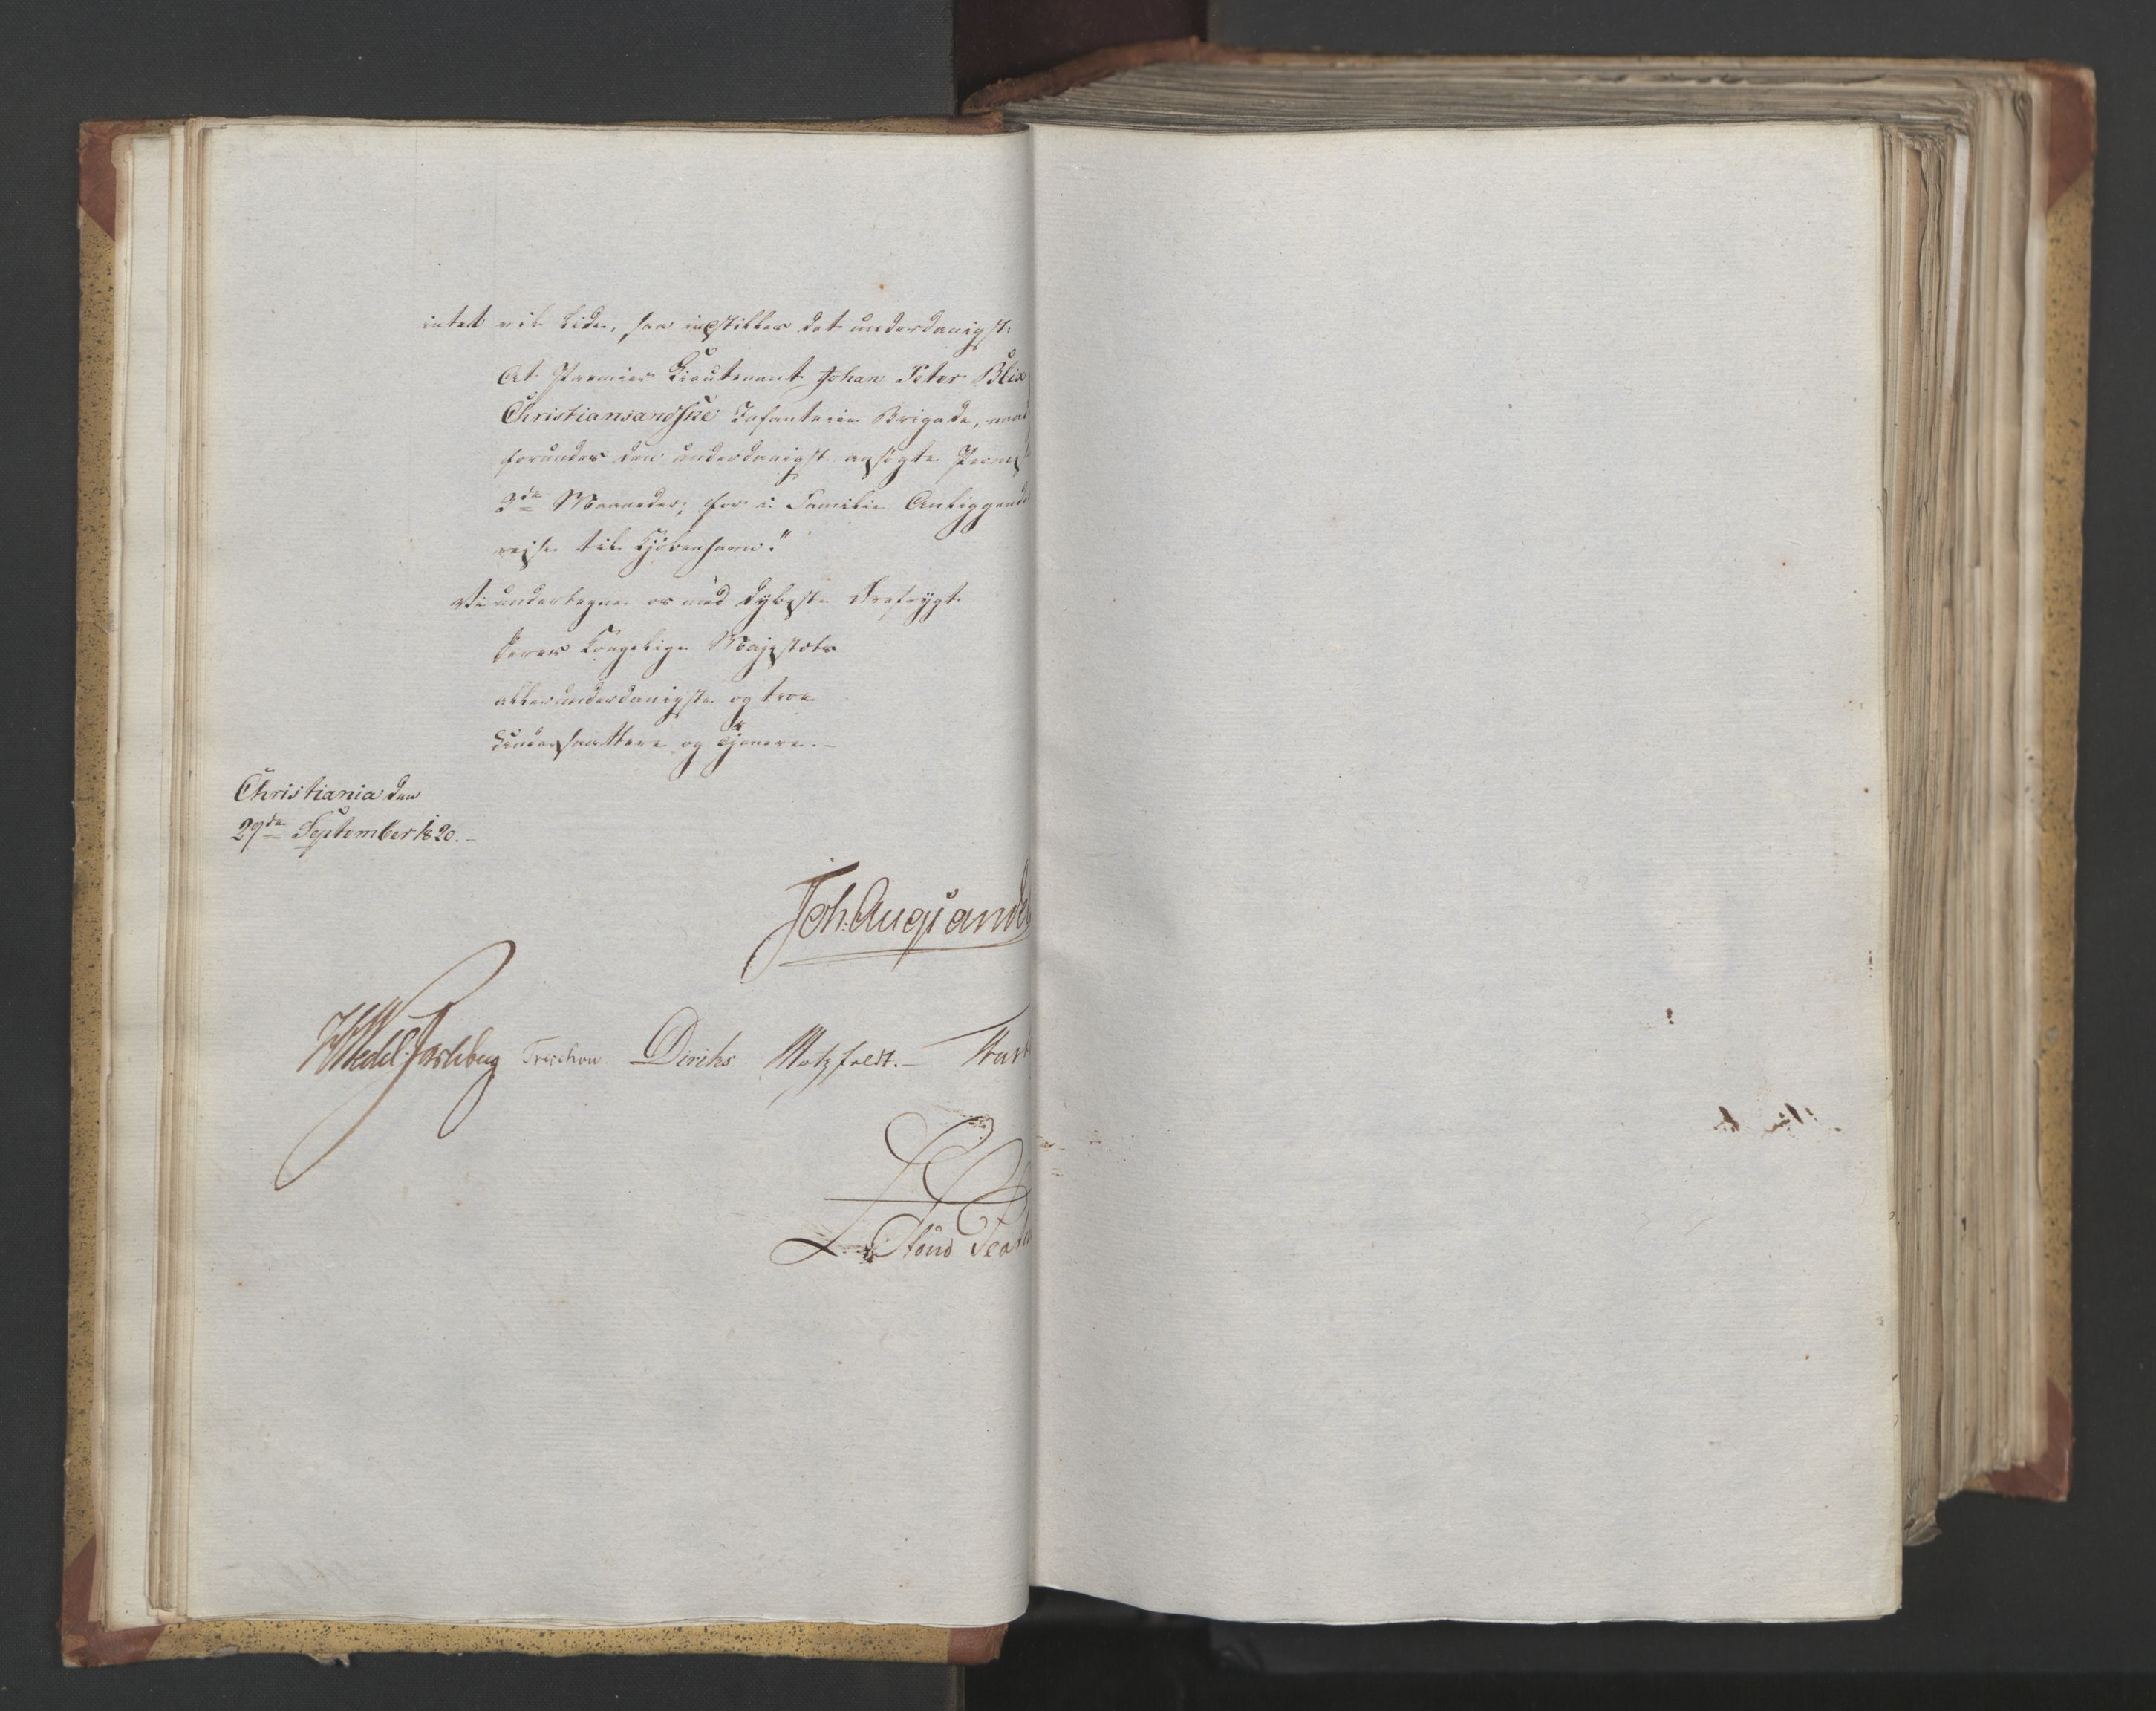 intet vil lide, saa indstilles det underdanigst:
At Premier Lieutenant Johan Peter Blix
Christiansandske Infanterie Brigade, naad
forundes den underdanigst ansøgte Permis
3de Maaneder, for i Familie Anliggende
rejse til Kjöbenhavn."
Vi undertegne os med dybeste Ærefrygt
Deres Kongelige Majestæts
allerunderdanigste og troe
Undersaattere og Tjenere.-
Christiania den
29de September 1820.-
Joh. Aug: Sande
HWedel Jarlsberg Treschow. Diriks Motzfeldt.-